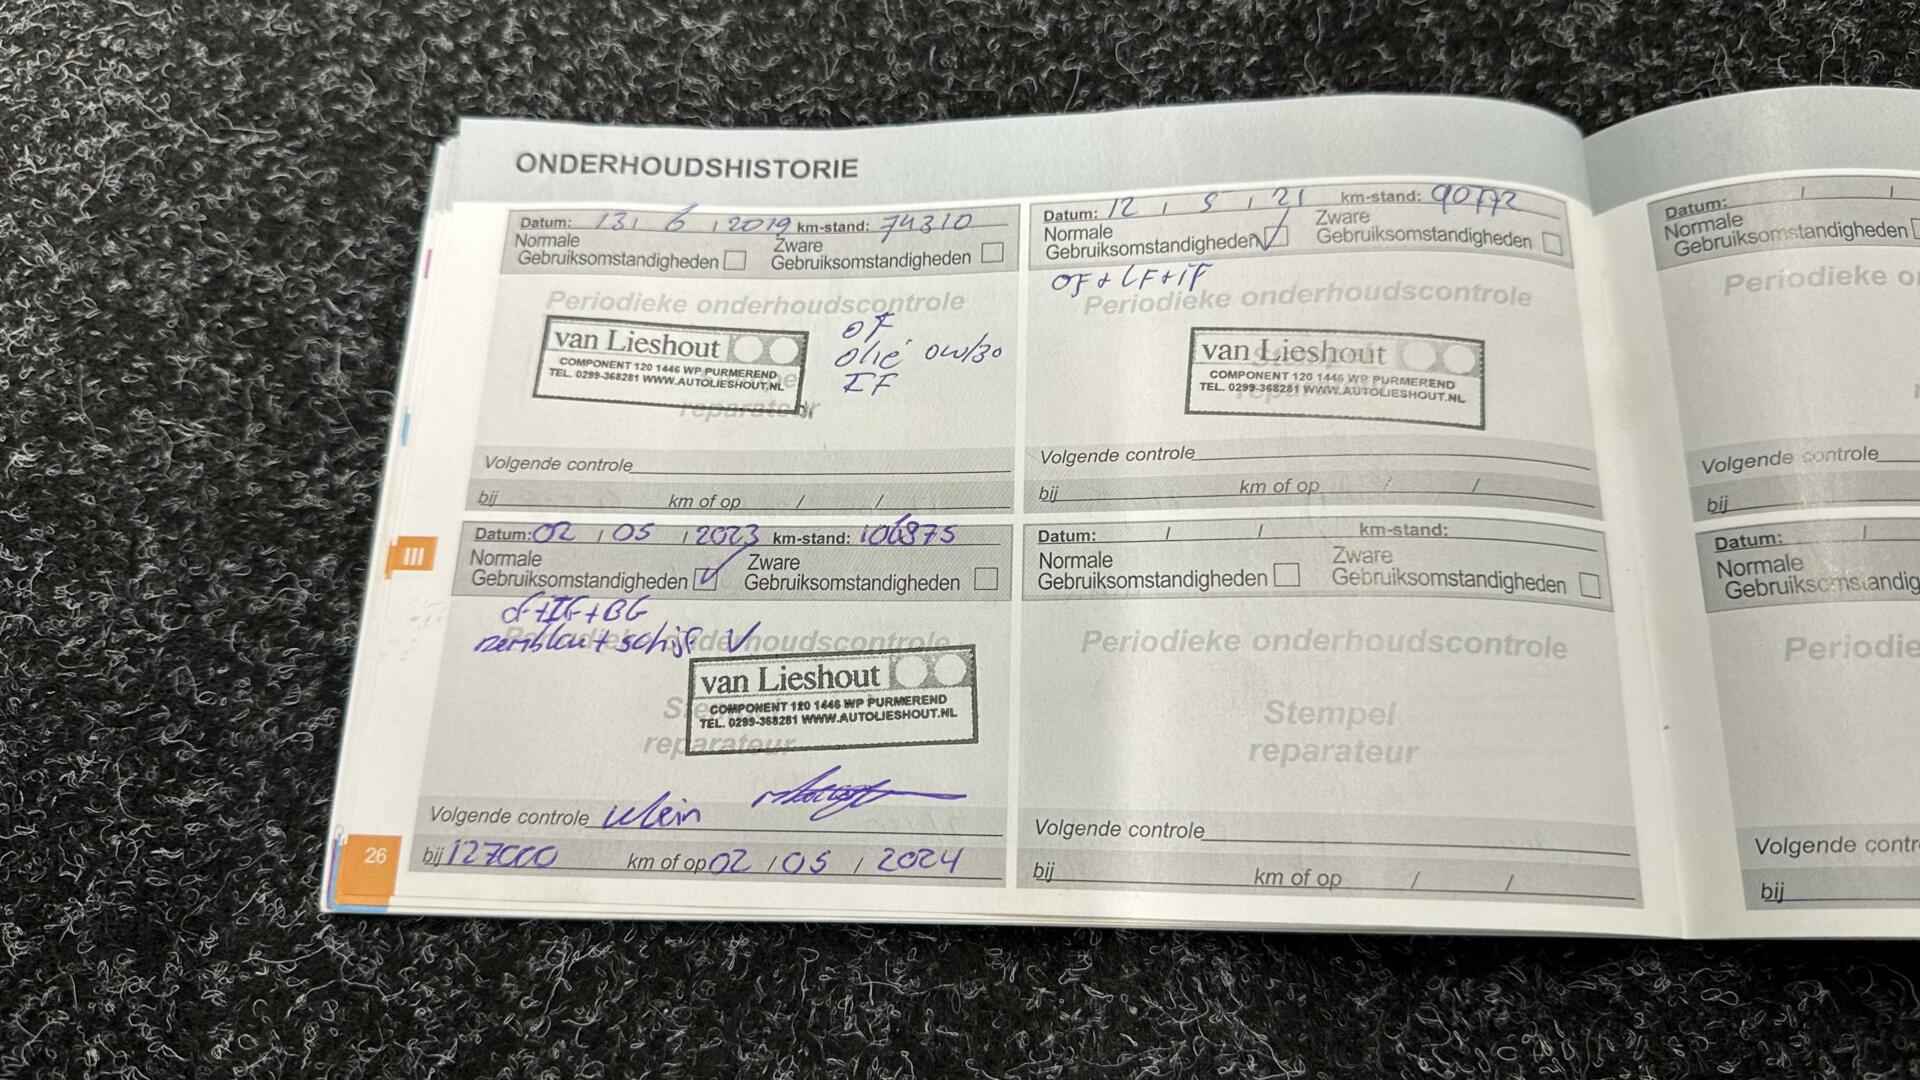 ONDERHOUDSHISTORIE
Datum: 13 / 6 / 2019 km-stand: 74310
Normale Zware
Gebruiksomstandigheden Gebruiksomstandigheden
Periodieke onderhoudscontrole
OF
olie 0W/30
IF
van Lieshout
COMPONENT 120 1446 WP PURMEREND
TEL. 0299-368281 WWW.AUTOLIESHOUT.NL
reparateur
Volgende controle
bij km of op / /
Datum: 12 / 5 / 21 km-stand:
Normale Zware
Gebruiksomstandigheden Gebruiksomstandigheden
OF + LF + IF
Periodieke onderhoudscontrole
van Lieshout
COMPONENT 120 1446 WP PURMEREND
TEL. 0299-368281 WWW.AUTOLIESHOUT.NL
Volgende controle
bij km of op / /
III
Datum: 02 / 05 / 2023 km-stand: 106875
Normale Zware
Gebruiksomstandigheden Gebruiksomstandigheden
remblok + schijf V
Periodieke onderhoudscontrole
van Lieshout
COMPONENT 120 1446 WP PURMEREND
TEL. 0299-368281 WWW.AUTOLIESHOUT.NL
reparateur
Volgende controle klein
bij 127000 km of op 02 / 05 / 2024
26
Datum: / / km-stand:
Normale Zware
Gebruiksomstandigheden Gebruiksomstandigheden
Periodieke onderhoudscontrole
Stempel
reparateur
Volgende controle
bij km of op / /
Datum: / /
Normale
Gebruiksomstandigheden
Periodieke o
Volgende controle
bij
Datum: /
Normale
Gebruiksomstandig
Periodie
Volgende contr
bij